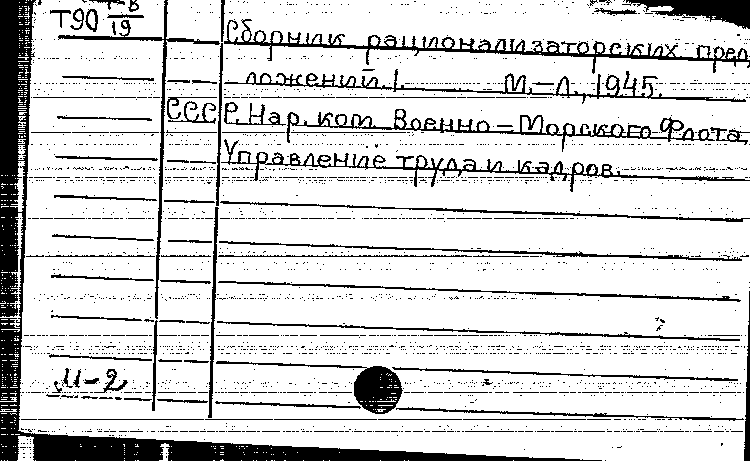 Т90 Г-В/19
Сборник рационализаторских пред
ложений. 1. М.-Л., 1945.
СССР. Нар. ком. Военно-Морского Флота.
Управление труда и кадров.
М-2